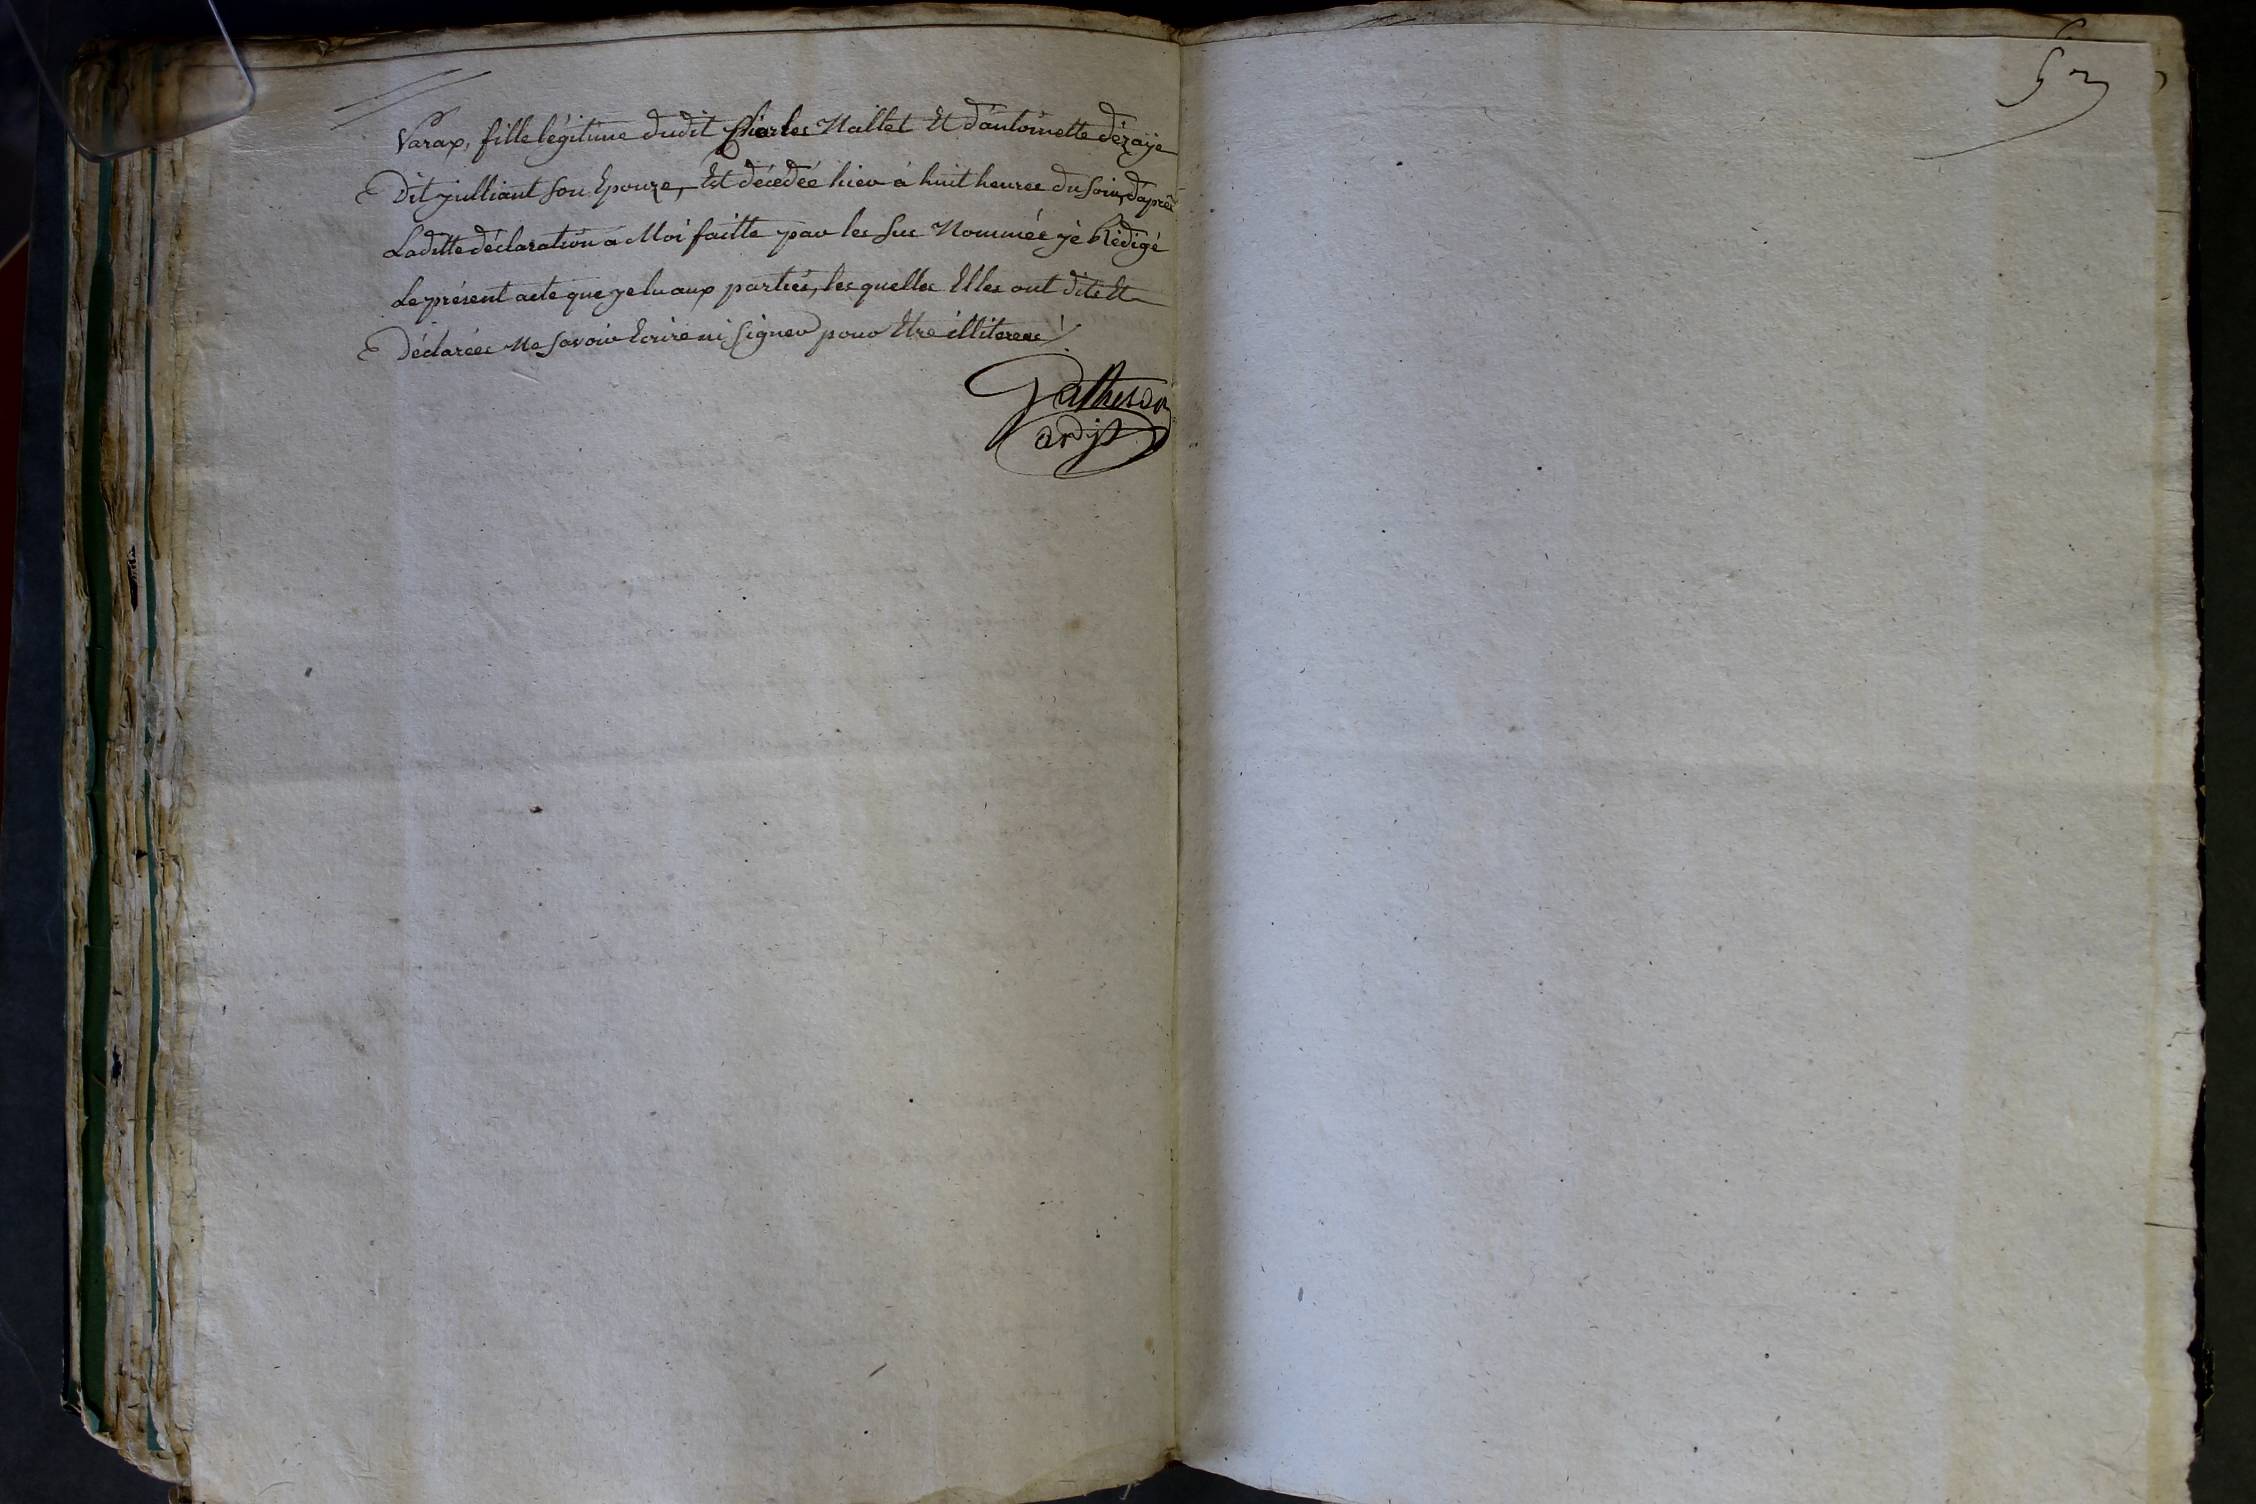 Varax, fille légitime dudit Charles Nallet Et d'antoinette dézaÿe
Dit julliant son Epouze, Est décédéé hier à huit heures du soir, d'aprês
Laditte déclaration à Moi faitte par les sus Nommés jé Rédigé
Le présent acte que je lu aux parties, les quelles Elles ont dits Et
Déclarées Ne savoir Ecrire ni signer pour Etre illiteres
adjt
52